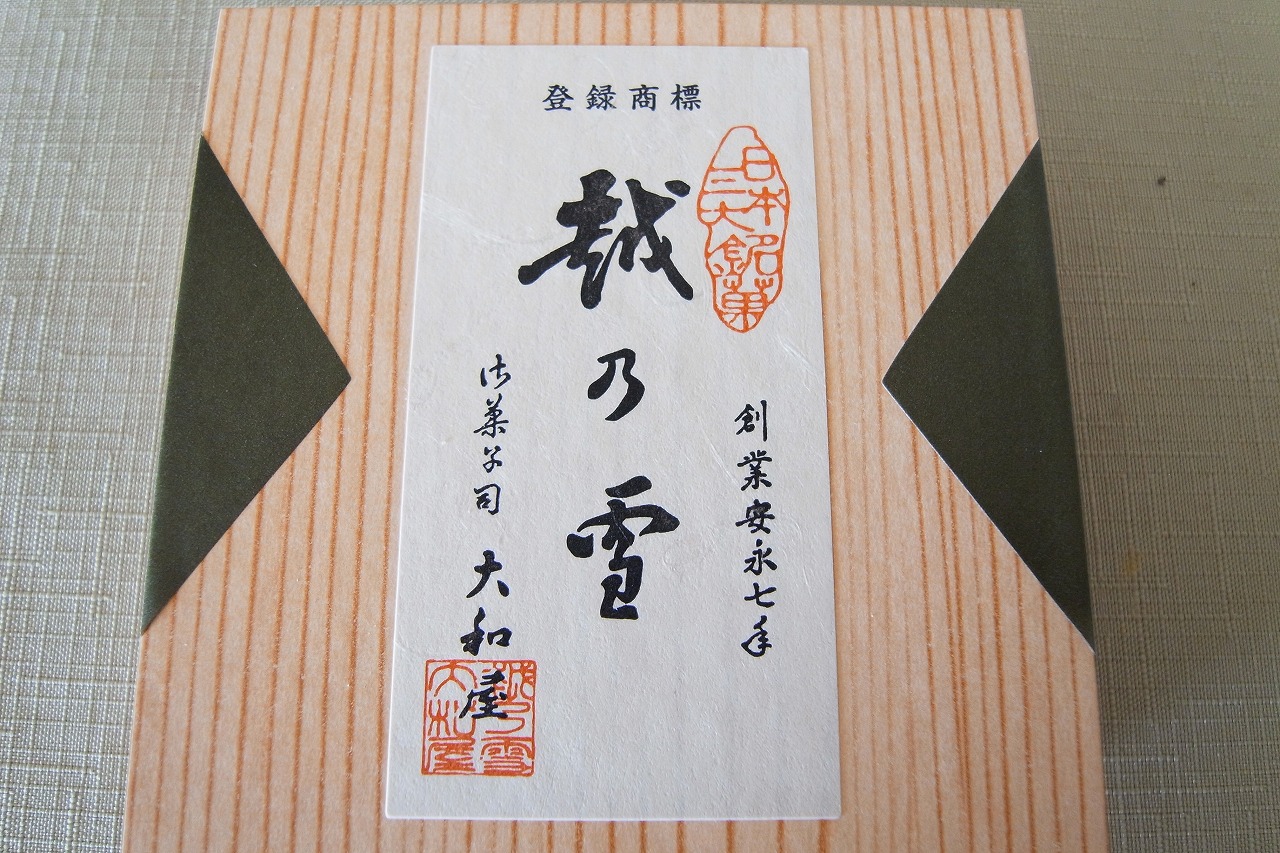 登録商標
日本
三大銘菓
創業安永七年
越乃雪
御菓子司 大和屋
越乃雪
大和屋